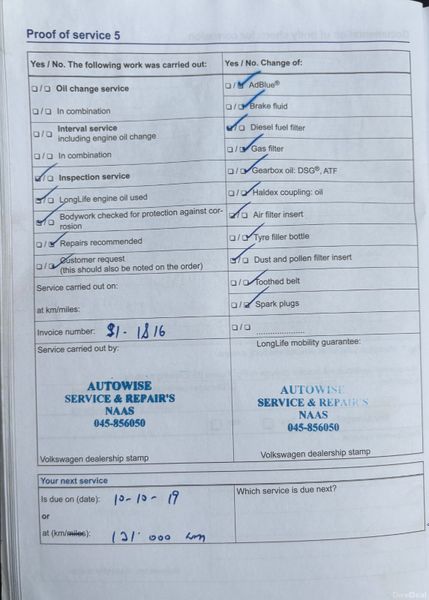 Proof of service 5
Yes / No. The following work was carried out:
Oil change service
In combination
Interval service
including engine oil change
In combination
Inspection service
LongLife engine oil used
Bodywork checked for protection against cor-
rosion
Repairs recommended
Customer request
(this should also be noted on the order)
Service carried out on:
at km/miles:
Invoice number:
Service carried out by:
AUTOWISE
SERVICE & REPAIR'S
NAAS
045-856050
Volkswagen dealership stamp
Yes / No. Change of:
AdBlue®
Brake fluid
Diesel fuel filter
Gas filter
Gearbox oil: DSG®, ATF
Haldex coupling: oil
Air filter insert
Tyre filler bottle
Dust and pollen filter insert
Toothed belt
Spark plugs
LongLife mobility guarantee:
AUTOWISE
SERVICE & REPAIR'S
NAAS
045-856050
Volkswagen dealership stamp
Your next service
Is due on (date): 10-10-19
or
at (km/miles): 121 000 km
Which service is due next?
DoneDeal